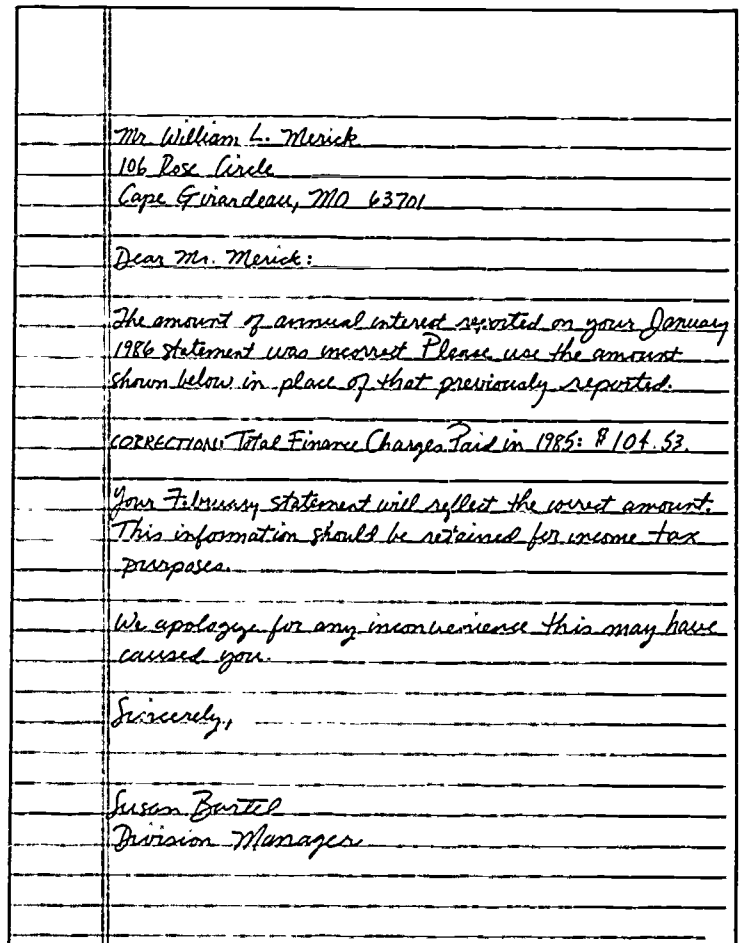 Mr. William L. Merick
106 Rose Circle
Cape Girardeau, MO 63701
Dear Mr. Merick:
The amount of annual interest reported on your January
1986 statement was incorrect Please use the amount
shown below in place of that previously reported.
CORRECTION: Total Finance Charges Paid in 1985: $104.53.
Your February statement will reflect the correct amount.
This information should be retained for income tax
purposes.
We apologize for any inconvenience this may have
caused you.
Sincerely,
Susan Bartel
Division Manager